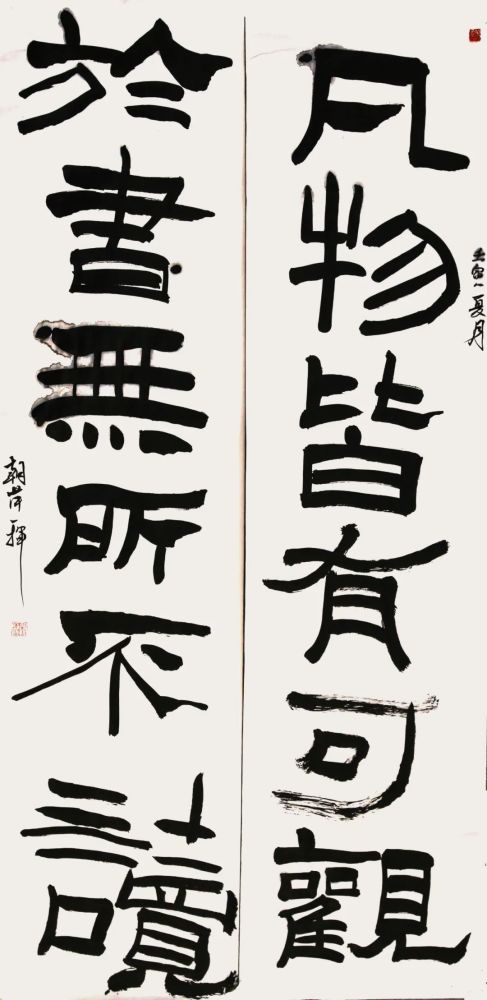 凡物皆有可觀
壬寅夏月
於書無所不讀